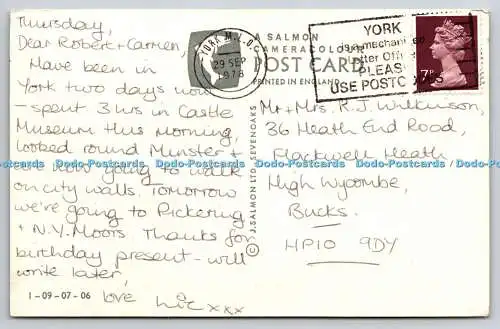 Thursday,
Dear Robert + Carmen,
Have been in
York two days now
- spent 3 hrs in Castle
Museum this morning,
looked round Minster +
are now going to walk
on city walls. Tomorrow
we're going to Pickering
+ N.Y. Moors. Thanks for
birthday present - will
write later,
love xxx
1-09-07-06
YORK M.L.O.
29 SEP
1978
A SALMON
CAMERACOLOUR
POST CARD
PRINTED IN ENGLAND
© J. SALMON LTD. SEVENOAKS
YORK
is a mechanised
Letter Office
PLEASE
USE POSTCODES
7P
Mr + Mrs. R.J. Wilkinson,
36 Heath End Road,
Flackwell Heath
High Wycombe,
Bucks.
HP10 9DY
Dodo-Postcards Dodo-Postcards Dodo-Postcards Dodo-Postcards Dodo-Postcards